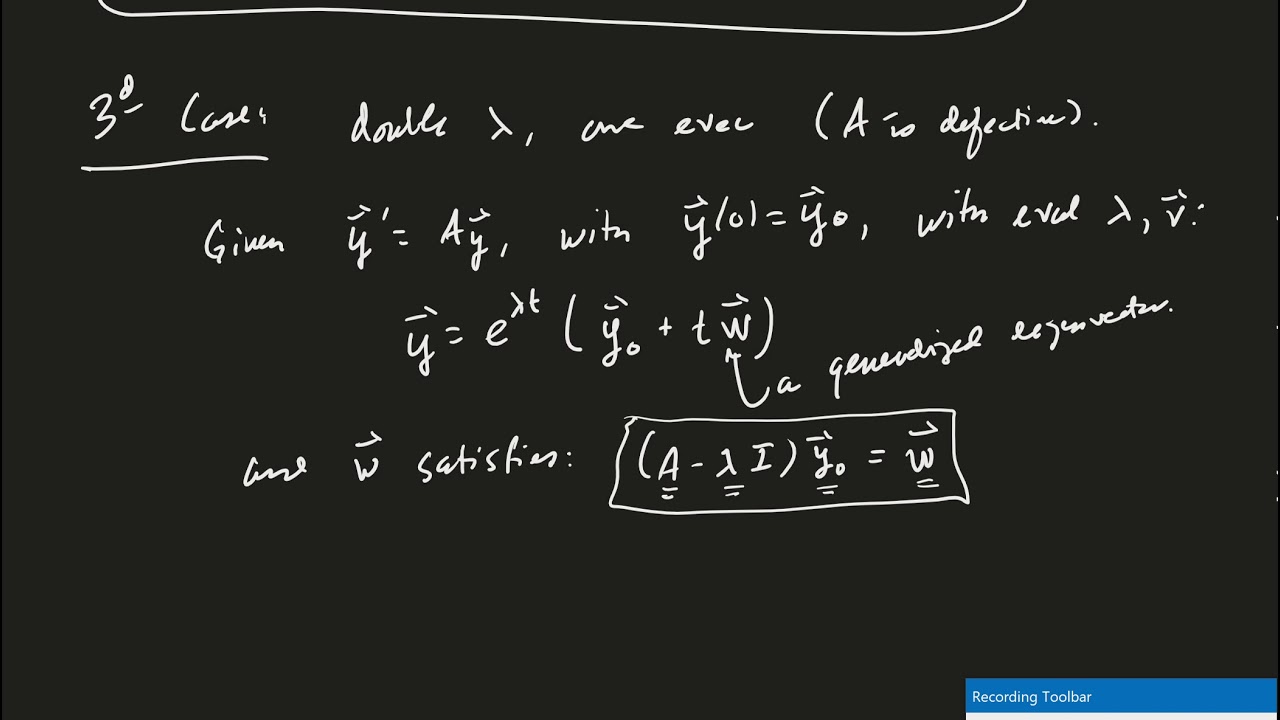 3ᵈ Case: double λ, one evec (A is defective).
Given y⃗' = Ay⃗, with y⃗(0) = y⃗₀, with eval λ, v⃗:
y⃗ = e^{λt} (y⃗₀ + t w⃗)
a generalized eigenvector.
and w⃗ satisfies: (A - λI) y⃗₀ = w⃗
Recording Toolbar